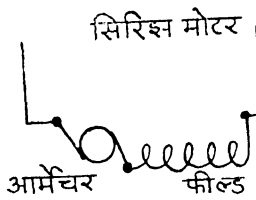 सिरिझ मोटर
आर्मेचर
फील्ड